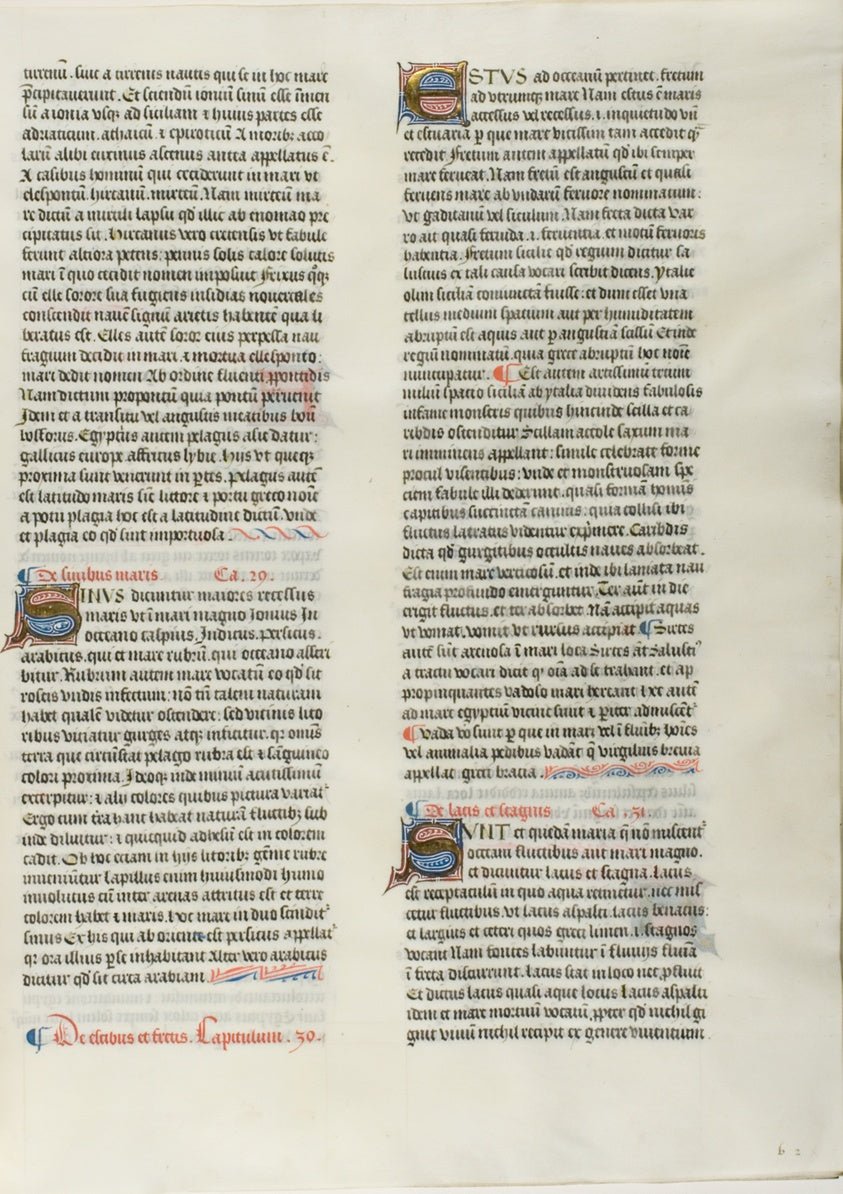 tirrenū. siue a tirrenis nautis qui se in hoc mare
p̄cipitauerunt. Et sciendū ioniū sinū esse īmen
sū a ionia vsq; ad siciliam ⁊ huius partes esse
adriaticum. athaicū ⁊ epiroticū A morib; acco
larū alibi euxinus ascenus antea appellatus ē.
A casibus hominū qui ceciderunt in mare vt
elespontū. hircanū. mirteū. Nam mirteū ma
re dictū a mirtili lapsu qd' illic ab enomao pre
cipitatus sit. hircanus vero cretensis vt fabule
ferunt altiora petens: pennis solis calore solutis
mari ī quo cecidit nomen imposuit Frixus q̄q;
cū elle sorore sua fugiens insidias nouercales
conscendit nauē signū arietis habentē qua li
beratus est. Elles autē soror eius perpessa nau
fragium decidit in mari ⁊ mortua ellesponto:
mari dedit nomen Ab ordine fluenti ppontidis
Nam dictum propontū quia pontū peruenit
Idem et a transitu vel angustis meatibus boū
bosforus. Egyptius autem pelagus asie datur:
gallicus europe affricus lybie. hijs vt queq;
proxima sunt venerunt in p̄tes. Pelagus autē
est latitudo maris sin̄ littore ⁊ portu greco noīe
a potu plagia hoc est a latitudine dictū. vnde
et plagia eo qd' sint importuosa.
De sinibus maris Ca. 29.
SINVS dicuntur maiores recessus
maris vt ī mari magno Ionius In
occeano caspius, Indicus. persicus.
arabicus. qui et mare rubrū. qui occeano asscri
bitur. Rubrum autem mare vocatū eo qd' sit
roseis vndis infectum: nō tn̄ talem naturam
habet qualē videtur ostendere: sed vicinis lito
ribus viciatur gurges atq; inficitur. qr omīs
terra que circūstat pelago rubra est ⁊ sāguineo
colori proxima. Ideoq; inde miniū acutissimū
excerpitur: ⁊ alij colores quibus pictura variat'
Ergo cum tra hanc habeat naturā fluctib; sub
inde diluitur: ⁊ quicquid adhesū est in colorem
cadit. Ob hoc etiam in hijs litorib; gēme rubre
inueniūtur lapillus enim huiusmodi humo
inuolutus cū inter arenas attritus est et terre
colorem habet ⁊ maris. hoc mare in duo scindit'
sinus Ex his qui ab oriente est persicus appellat'
qr ora illius p̄se inhabitant Alter vero arabicus
dicitur qd' sit circa arabiam.
De estibus et fretis. Capitulum. 30.
ESTVS ad occeanū pertinet. fretum
ad vtrumq; mare Nam estus ē maris
accessus vel recessus. i. inquietudo vn̄
et estuaria p que mare vicissim tam accedit q̄
recedit Fretum autem appellatū qd' ibi semper
mare ferueat. Nam fretū est angustū et quasi
feruens mare ab vndarū feruore nominatum:
vt gaditanū vel siculum Nam freta dicta var
ro ait quasi feruida. i. feruentia. et motū feruoris
habentia. Fretum sicilie qd' regium dicitur sa
lustius ex tali causa vocari scribit dicens. ytalie
olim siciliā coniunctā fuisse: et dum esset vna
tellus medium spatium aut per humiditatem
abruptū est aquis aut p angustiā scissū Et inde
regiū nominatū. quia grece abruptū hoc noīe
nuncupatur. Est autem artissimū trium
miliū spacio siciliā ab ytalia diuidens fabulosis
infame monstris quibus hincinde scilla et ca
ribdis ostenditur Scillam accole saxum ma
ri imminens appellant: simile celebrate forme
procul visentibus: vnde et monstruosam spē
ciem fabule illi dederunt. quasi formā homīs
capitibus succinctā caninis: quia collisi ibi
fluctus latratus videntur exp̄mere. Caribdis
dicta qd' gurgitibus occultis naues absorbeat.
Est enim mare verticosū. et inde ibi laniata nau
fragia profundo emerguntur. Ter aut̄ in die
erigit fluctus. et ter absorbet Nā accipit aquas
vt vomat. vomit vt rursus accipiat. Sirtes
autē sūt arenosa ī mari loca Sirtes āt Salusti'
a tractu vocari dicit q' oīa ad se trahant. et ap
propinquantes vadoso mari hereant hee autē
ad mare egyptiū vicine sunt ⁊ p̄iter admiscēt'
Vada vo sunt p que in mari vel ī fluīb; hoīes
vel animalia pedibus vadāt q̄ virgilius breuia
appellat greci bracia.
De lacis et stagnis Ca. 31.
SVNT et quedā maria q̄ nō miscent'
occeani fluctibus aut mari magno.
et dicuntur lacus et stagna. Lacus
est receptaculū in quo aqua retinetur. nec mis
cetur fluctibus. vt lacus aspalti. lacus benacus:
et largius et ceteri quos greci limen. i. stagnos
vocant Nam fontes labuntur ī fluuijs fluuia
ī freta discurrunt. lacus stat in loco nec p̄fluit
Et dictus lacus quasi aque locus Lacus aspalti
idem et mare mortuū vocatū, pter qd' nichil gi
gnit viuū nichil recipit ex genere viuentium.
b 2